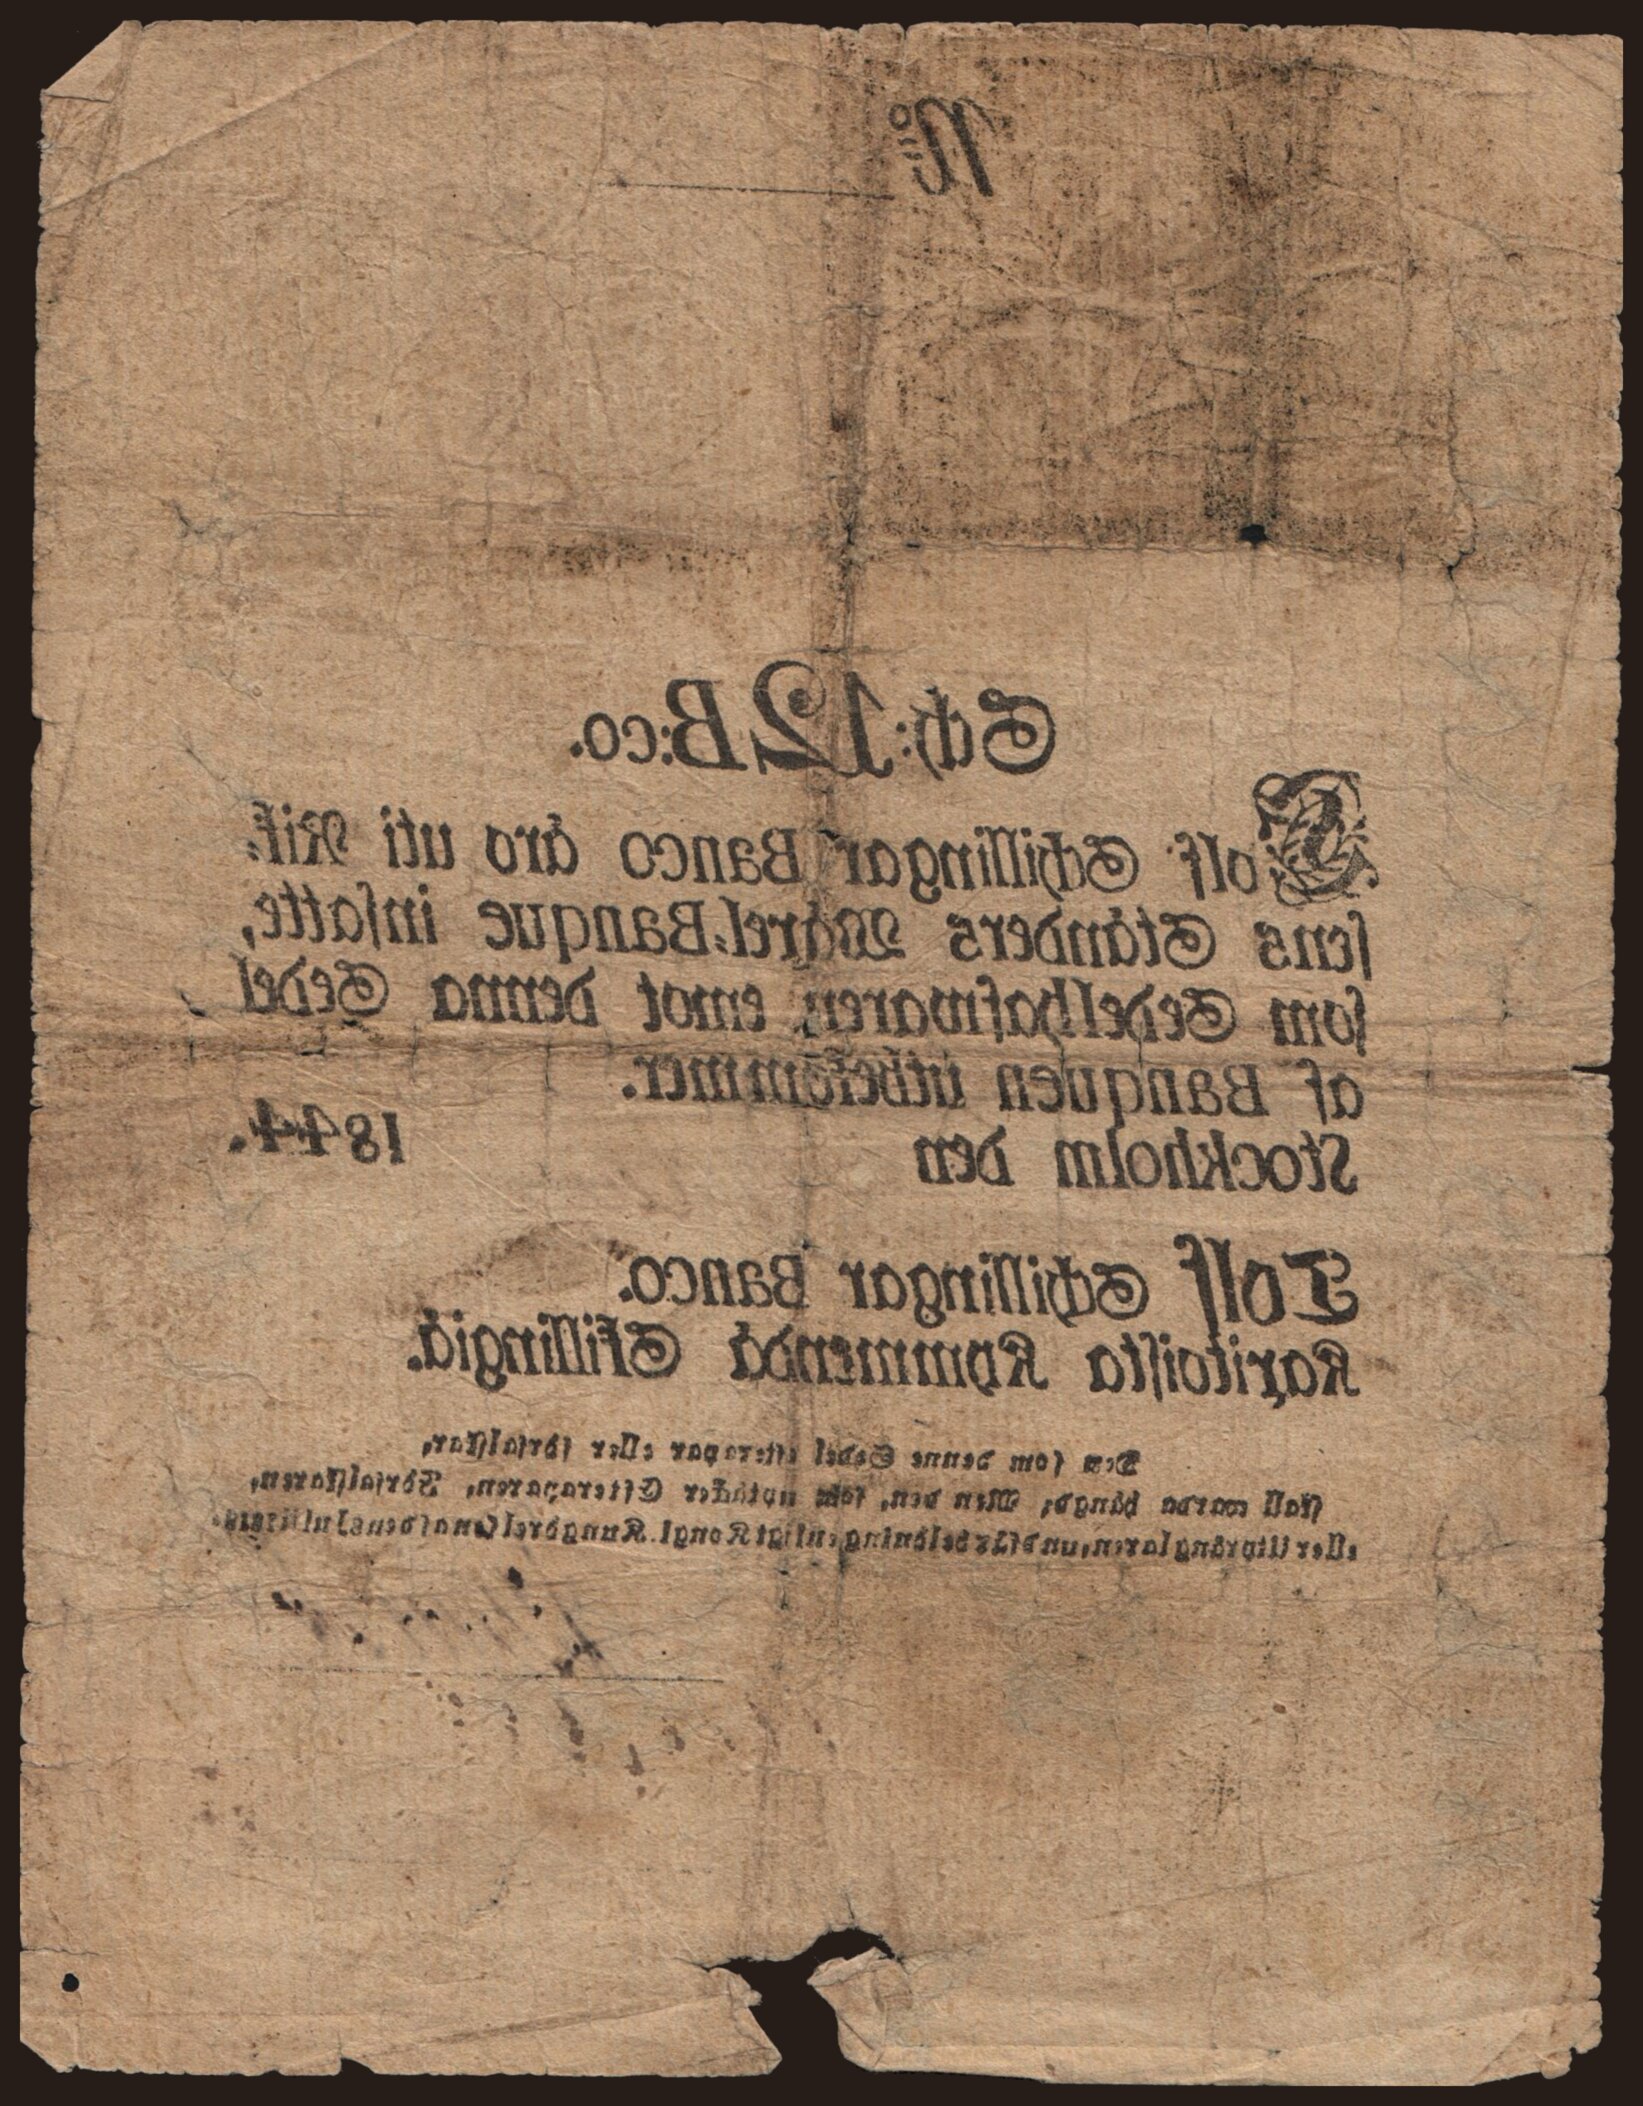 No
Sch: 12 B:co.
Tolf Schillingar Banco äro uti Rik-
sens Ständers Wäxel-Banque insatte,
som Sedelhafwaren emot denna Sedel
af Banquen utbekommer.
Stockholm den 1844.
Tolf Schillingar Banco.
Kaxitoista Kymmendä Skillingiä.
Den som denne Sedel efterapar eller förfalskar,
skall warda hängd; Men den, som uptäcker Efteraparen, Förfalskaren,